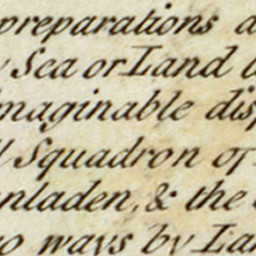 preparations a
Sea or Land
maginable dis
Squadron of
nladen, & the
wo ways by Lan